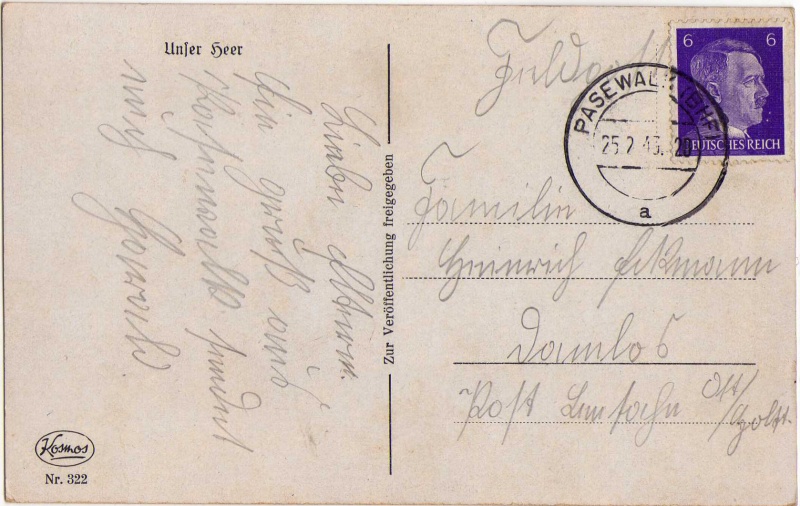 Unser Heer
Liebe Eltern.
Ein gruß aus
sendet
euch
Zur Veröffentlichung freigegeben
Feldpost
6 6
DEUTSCHES REICH
PASEWALK (BHF)
25.2.43. 20
a
Familie
Heinrich Eckmann
Damlos
Post Lensahn Ost/
Holst.
Kosmos
Nr. 322